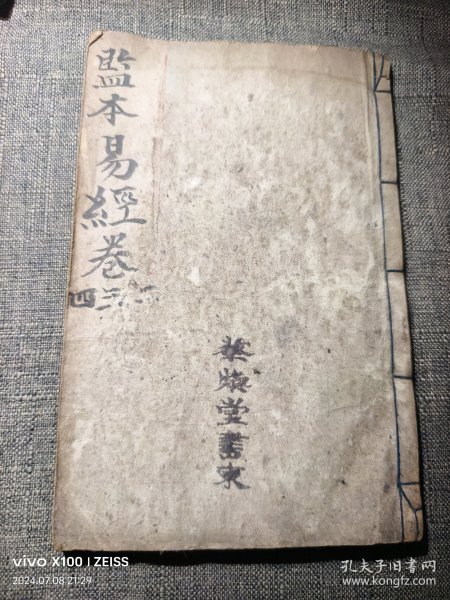 監本易經卷
四三二
堂書
vivo X100 | ZEISS
2024.07.08 21:29
孔夫子旧书网
www.kongfz.com